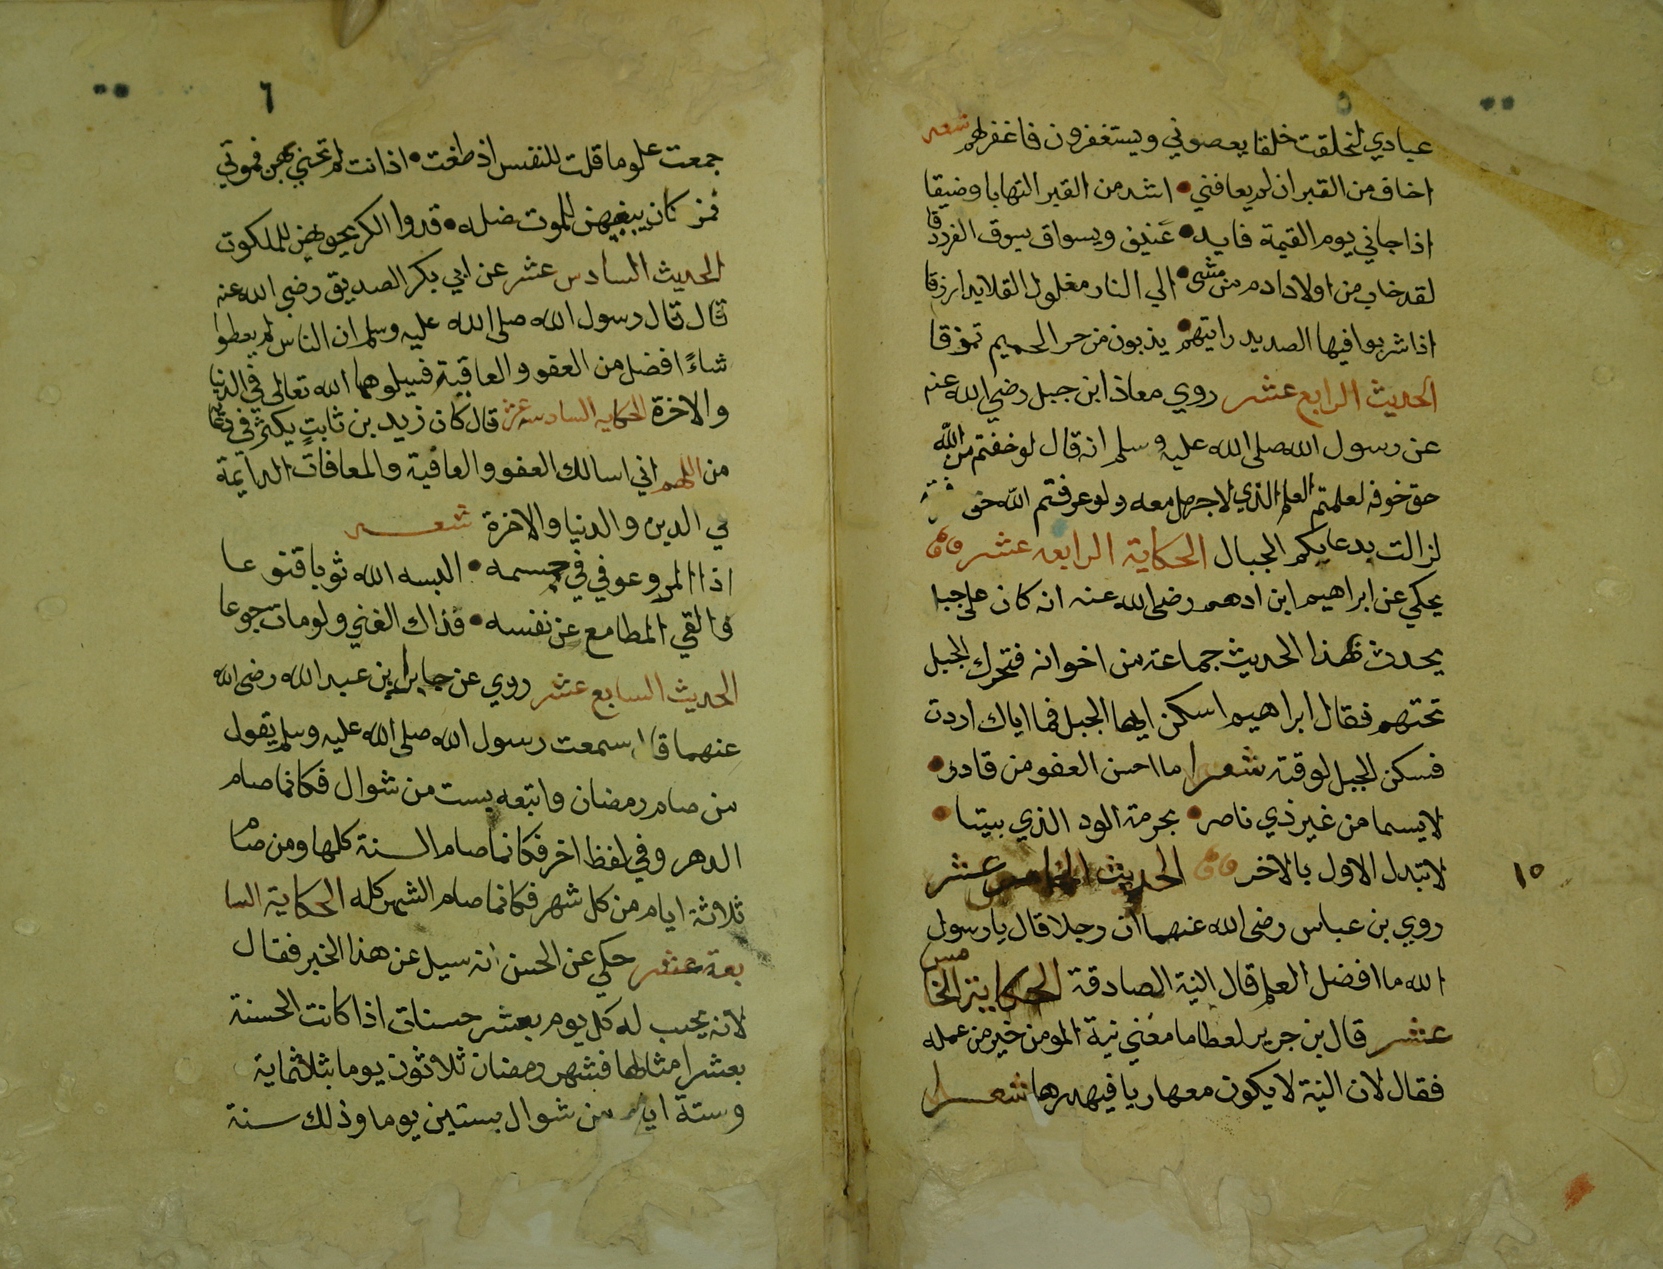 ٥
عبادي لخلقت خلقا يعصوني ويستغفرون فاغفر لهم شعر
اخاف من القبر ان لم يعافني • اشد من القبر التهابا وضيقا
اذا جاني يوم القيمة قايد • عنيف ويسواق يسوق الفرزدقا
لقد خاب من اولاد ادم من مشى • الي النار مغلول القلايد ازرقا
اذا شربوا فيها الصديد رايتهم • يذوبون من حر الحميم تمزقا
الحديث الرابع عشر روي معاذ ابن جبل رضي الله عنه
عن رسول الله صلى الله عليه وسلم انه قال لو خفتم من الله
حق خوفه لعلمتم العلم الذي لا جهل معه ولو عرفتم الله حق
لزالت بدعايكم الجبال الحكاية الرابعه عشر
يحكي عن ابراهيم ابن ادهم رضى الله عنه انه كان على جبل
يحدث بهذا الحديث جماعة من اخوانه فتحرك الجبل
تحتهم فقال ابراهيم اسكن ايها الجبل فما اياك اردت
فسكن الجبل لوقته شعرا ما احسن العفو من قادر •
لا يسما من غير ذي ناصر • بحرمة الود الذي بيننا •
لا تبدل الاول بالاخر الحديث الخامس عشر
١٥
روي بن عباس رضى الله عنهما ان رجلا قال يا رسول
الله ما افضل العلم قال النية الصادقة الحكاية الخامس
عشر قال بن جرير لعطا ما معني نية المومن خير من عمله
فقال لان النية لا يكون معها ريا فيهدرها شعرا
٦
جمعت علوما قلت للنفس اذ طغت • اذا انت لم تحيي بهن فموتي
فمن كان يبغيهن للموت ضله • قدوا الكريحيو بهن للملكوت
الحديث السادس عشر عن ابي بكر الصديق رضي الله عنه
قال قال رسول الله صلى الله عليه وسلم ان الناس لم يعطوا
شاءً افضل من العفو والعافية فسيلوهما الله تعالى في الدنيا
والاخرة الحكايه السادسة عشر قال كان زيد بن ثابت يكثر في دعا
من اللهم اني اسالك العفو والعافية والمعافات الدايمة
في الدين والدنيا والاخرة شعر
اذا المرو عوفي في جسمه • البسه الله ثوبا قنوعا
والقي المطامع عن نفسه • فذاك الغني ولو مات جوعا
الحديث السابع عشر روي عن جابر بن عبد الله رضى الله
عنهما قال سمعت رسول الله صلى الله عليه وسلم يقول
من صام رمضان واتبعه بست من شوال فكانما صام
الدهر وفي لفظ اخر فكانما صام السنة كلها ومن صام
ثلاثة ايام من كل شهر فكانما صام الشهر كله الحكاية السا
بعة عشر حكي عن الحسن انه سيل عن هذا الخبر فقال
لانه يحب له كل يوم بعشر حسنات اذا كانت الحسنة
بعشر امثالها فشهر رمضان ثلاثون يوما بثلاثماية
وستة ايام من شوال بستين يوما وذلك سنة